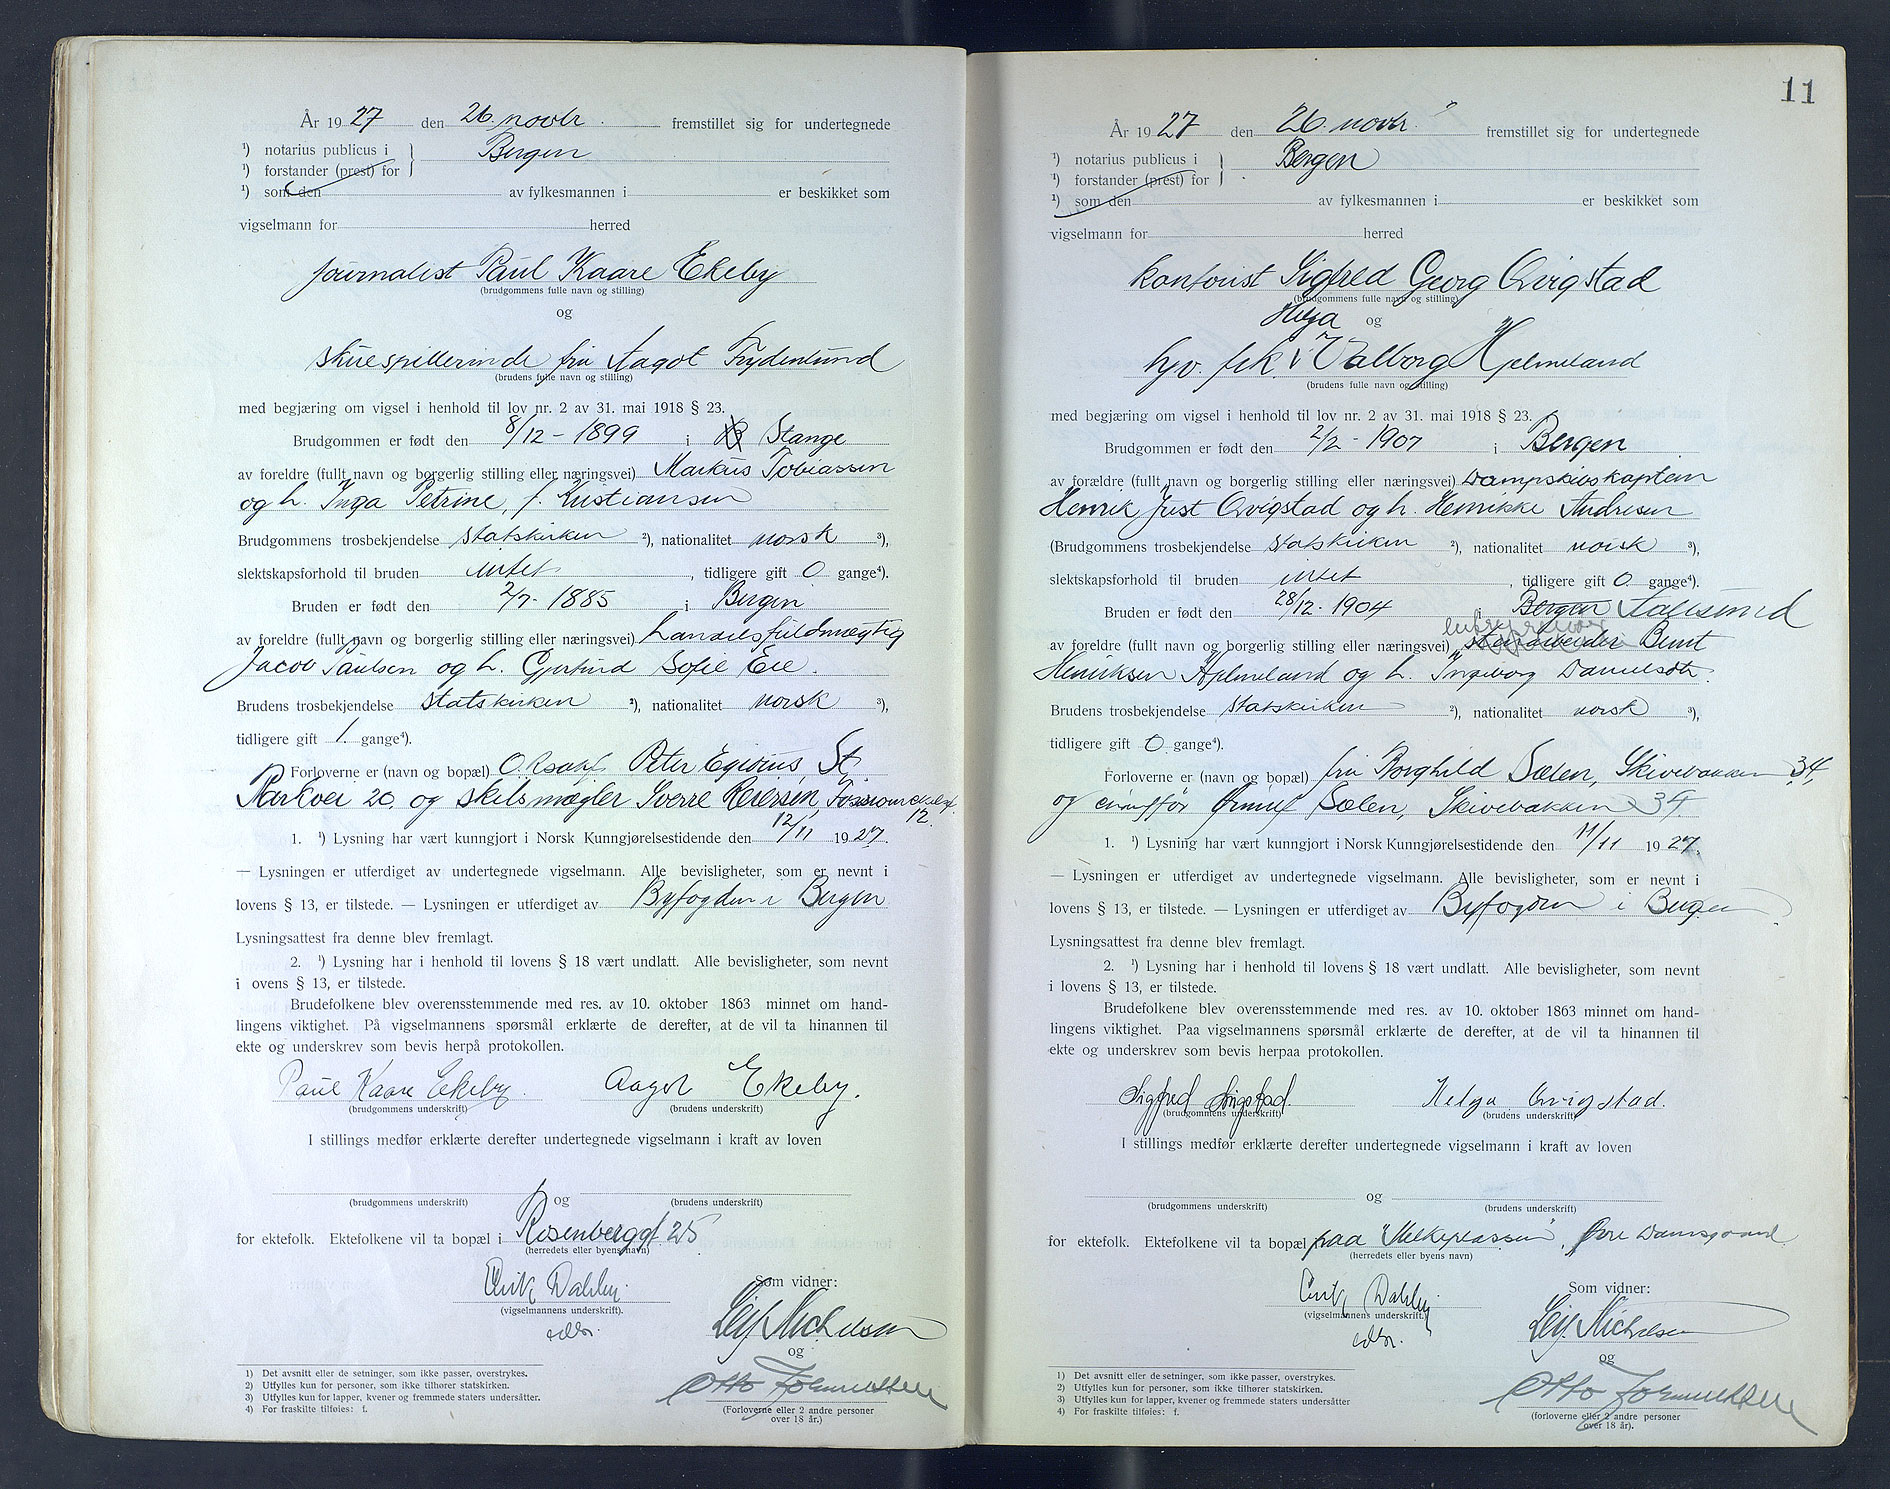 År 19 27 den 26. novbr. fremstillet sig for undertegnede
¹) notarius publicus i Bergen
¹) forstander (prest) for
¹) som den av fylkesmannen i er beskikket som
vigselmann for herred
journalist Paul Kaare Ekeby
(brudgommens fulle navn og stilling)
og
skuespillerinde fru Aagot Frydenlund
(brudens fulle navn og stilling)
med begjæring om vigsel i henhold til lov nr. 2 av 31. mai 1918 § 23.
Brudgommen er født den 8/12 - 1899 i Stange
av foreldre (fullt navn og borgerlig stilling eller næringsvei) Markus Tobiassen
og h. Inga Petrine, f. Kristiansen
Brudgommens trosbekjendelse statskirken ²), nationalitet norsk ³),
slektskapsforhold til bruden intet, tidligere gift 0 gange⁴).
Bruden er født den 2/7 - 1885 i Bergen
av foreldre (fullt navn og borgerlig stilling eller næringsvei) handelsfuldmægtig
Jacob Paulsen og h. Gjertrud Sofie Eie.
Brudens trosbekjendelse statskirken ²), nationalitet norsk ³),
tidligere gift 1. gange⁴).
Forloverne er (navn og bopæl) Peter Egidius, St.
Parkvei 20. og skibsmægler Sverre Reiersen,
12.
1. ¹) Lysning har vært kunngjort i Norsk Kunngjørelsestidende den 12/11 1927.
— Lysningen er utferdiget av undertegnede vigselmann. Alle bevisligheter, som er nevnt i
lovens § 13, er tilstede. — Lysningen er utferdiget av Byfogden i Bergen
Lysningsattest fra denne blev fremlagt.
2. ¹) Lysning har i henhold til lovens § 18 vært undlatt. Alle bevisligheter, som nevnt
i ovens § 13, er tilstede.
Brudefolkene blev overensstemmende med res. av 10. oktober 1863 minnet om hand-
lingens viktighet. På vigselmannens spørsmål erklærte de derefter, at de vil ta hinannen til
ekte og underskrev som bevis herpå protokollen.
Paul Kaare Ekeby. Aagot Ekeby.
(brudgommens underskrift) (brudens underskrift)
I stillings medfør erklærte derefter undertegnede vigselmann i kraft av loven
og
(brudgommens underskrift) (brudens underskrift)
for ektefolk. Ektefolkene vil ta bopæl i Rosenberggt 25
(herredets eller byens navn)
Erik Dahby
(vigselmannens underskrift).
Som vidner:
Leif Michelsen
og
Otto Johannessen
(Forloverne eller 2 andre personer
over 18 år.)
1) Det avsnitt eller de setninger, som ikke passer, overstrykes.
2) Utfylles kun for personer, som ikke tilhører statskirken.
3) Utfylles kun for lapper, kvener og fremmede staters undersåtter.
4) For fraskilte tilføies: f.
11
År 19 27 den 26. novbr. fremstillet sig for undertegnede
¹) notarius publicus i Bergen
¹) forstander (prest) for
¹) som den av fylkesmannen i er beskikket som
vigselmann for herred
kontorist Sigfred Georg Qvigstad
(brudgommens fulle navn og stilling)
Helga
og
hjv. frk. Valborg Hjelmeland
(brudens fulle navn og stilling)
med begjæring om vigsel i henhold til lov nr. 2 av 31. mai 1918 § 23.
Brudgommen er født den 2/2 - 1907 i Bergen
av forældre (fullt navn og borgerlig stilling eller næringsvei) Dampskibskaptein
Henrik Just Qvigstad og h. Henrikke Andresen
(Brudgommens trosbekjendelse statskirken ²), nationalitet norsk ³),
slektskapsforhold til bruden intet, tidligere gift 0. gange⁴).
Bruden er født den 28/12 - 1904 i Bergen Aalesund
av foreldre (fullt navn og borgerlig stilling eller næringsvei) stenarbeider Bernt
Henriksen Hjelmeland og h. Ingeborg Danielsdtr.
Brudens trosbekjendelse statskirken ²), nationalitet norsk ³),
tidligere gift 0 gange⁴).
Forloverne er (navn og bopæl) fru Borghild Sælen, Skivebakken 34,
og Sælen, Skivebakken 34.
1. ¹) Lysning har vært kunngjort i Norsk Kunngjørelsestidende den 11/11 1927.
— Lysningen er utferdiget av undertegnede vigselmann. Alle bevisligheter, som er nevnt i
lovens § 13, er tilstede. — Lysningen er utferdiget av Byfogden i Bergen.
Lysningsattest fra denne blev fremlagt.
2. ¹) Lysning har i henhold til lovens § 18 vært undlatt. Alle bevisligheter, som nevnt
i lovens § 13, er tilstede.
Brudefolkene blev overensstemmende med res. av 10. oktober 1863 minnet om hand-
lingens viktighet. Paa vigselmannens spørsmål erklærte de derefter, at de vil ta hinannen til
ekte og underskrev som bevis herpaa protokollen.
Sigfred Qvigstad. Helga Qvigstad.
(brudgommens underskrift) (brudens underskrift)
I stillings medfør erklærte derefter undertegnede vigselmann i kraft av loven
og
(brudgommens underskrift) (brudens underskrift)
for ektefolk. Ektefolkene vil ta bopæl paa "Melkeplassen", Øvre Damsgaard
(herredets eller byens navn)
Erik Dahby
(vigselmannens underskrift).
Som vidner:
Leif Michelsen
og
Otto Johannessen
(forloverne eller 2 andre personer
over 18 år).
1) Det avsnitt eller de setninger, som ikke passer, overstrykes.
2) Utfylles kun for personer, som ikke tilhører statskirken.
3) Utfylles kun for lapper, kvener og fremmede staters undersåtter
4) For fraskilte tilføies: f.